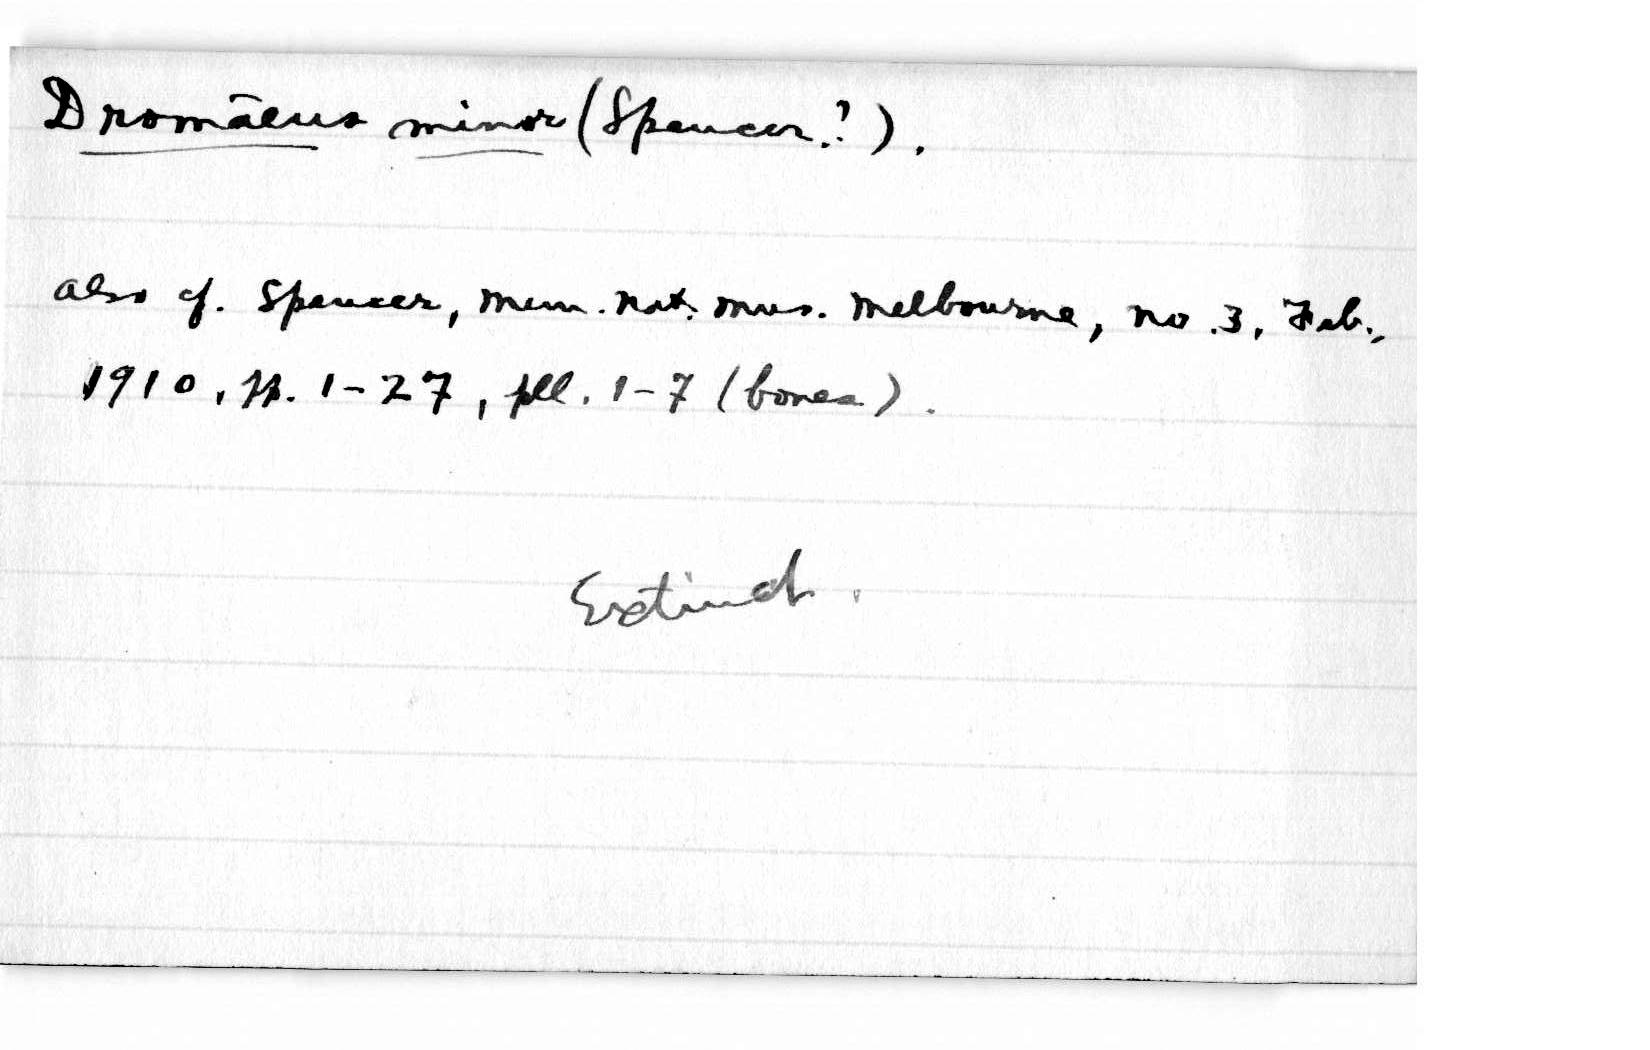 Dromāeus minor (Spencer?).
also cf. Spencer, Mem. Nat. Mus. Melbourne, no. 3, Feb.,
1910, pp. 1-27, pll. 1-7 (bones).
Extinct.